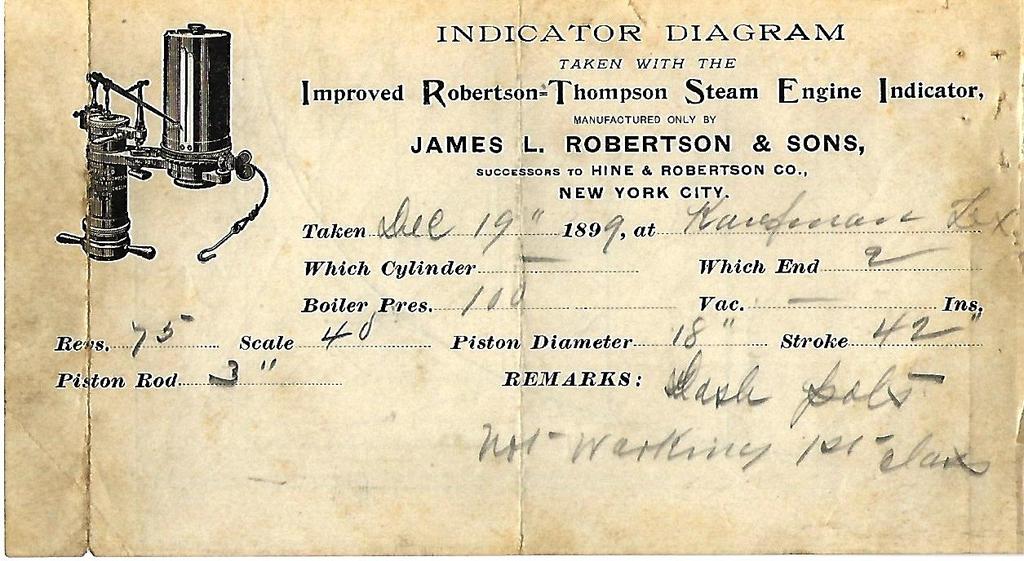 INDICATOR DIAGRAM
TAKEN WITH THE
Improved Robertson=Thompson Steam Engine Indicator,
MANUFACTURED ONLY BY
JAMES L. ROBERTSON & SONS,
SUCCESSORS TO HINE & ROBERTSON CO.,
NEW YORK CITY.
Taken Dec 19" 1899, at Kaufman Tex
Which Cylinder — Which End 2
Boiler Pres. 100 Vac. — Ins.
Revs. 75 Scale 40 Piston Diameter 18" Stroke 42"
Piston Rod 3" REMARKS: Dash pots
not working 1st class